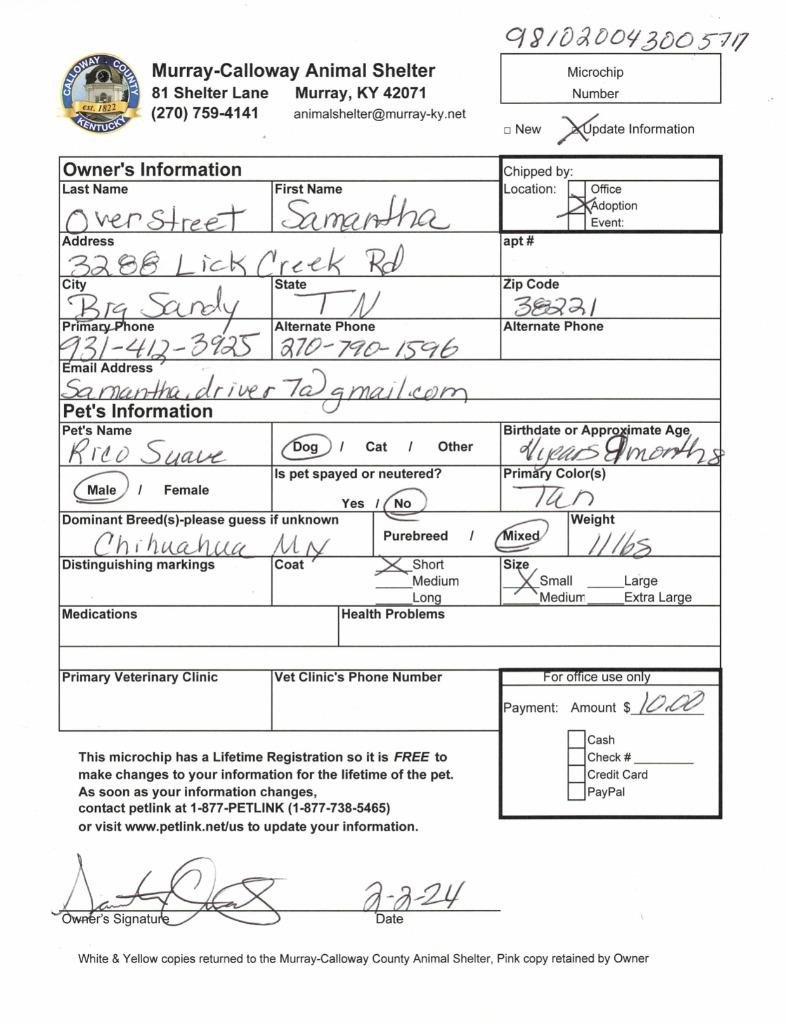 981020043005717
CALLOWAY COUNTY
est. 1822
KENTUCKY
Murray-Calloway Animal Shelter
81 Shelter Lane Murray, KY 42071
(270) 759-4141 animalshelter@murray-ky.net
Microchip
Number
□ New Update Information
Owner's Information
Chipped by:
Location: Office
Adoption
Event:
Last Name First Name
Overstreet Samantha
Address apt #
3288 Lick Creek Rd
City State Zip Code
Big Sandy TN 38221
Primary Phone Alternate Phone Alternate Phone
931-412-3925 270-790-1596
Email Address
Samantha.driver7@gmail.com
Pet's Information
Pet's Name Dog / Cat / Other Birthdate or Approximate Age
Rico Suave 4 years 9 months
Male / Female Is pet spayed or neutered? Yes / No Primary Color(s)
Tan
Dominant Breed(s)-please guess if unknown Purebreed / Mixed Weight
Chihuahua Mix 11 lbs
Distinguishing markings Coat Short Size Small Large
Medium Medium Extra Large
Long
Medications Health Problems
Primary Veterinary Clinic Vet Clinic's Phone Number For office use only
Payment: Amount $ 10.00
Cash
Check #
Credit Card
PayPal
This microchip has a Lifetime Registration so it is FREE to
make changes to your information for the lifetime of the pet.
As soon as your information changes,
contact petlink at 1-877-PETLINK (1-877-738-5465)
or visit www.petlink.net/us to update your information.
2-2-24
Owner's Signature Date
White & Yellow copies returned to the Murray-Calloway County Animal Shelter, Pink copy retained by Owner